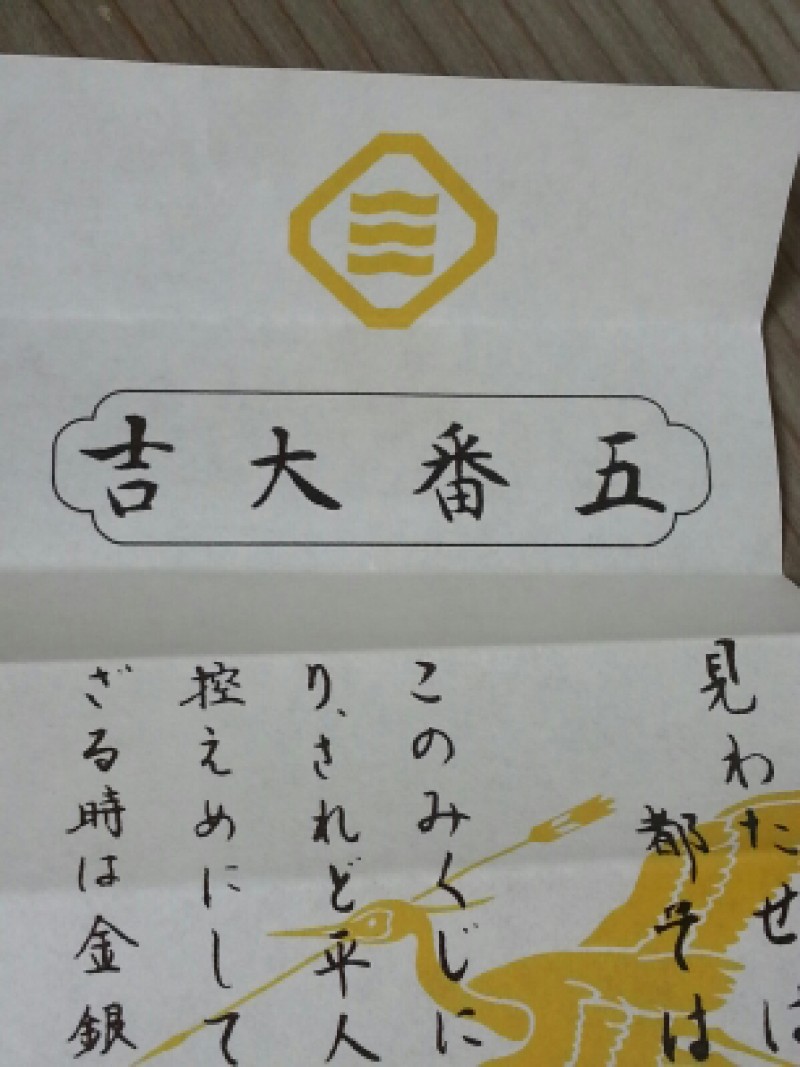 五番大吉
見わたせば
都ぞは
このみくじに
り、されど平人
控えめにして
ざる時は金銀